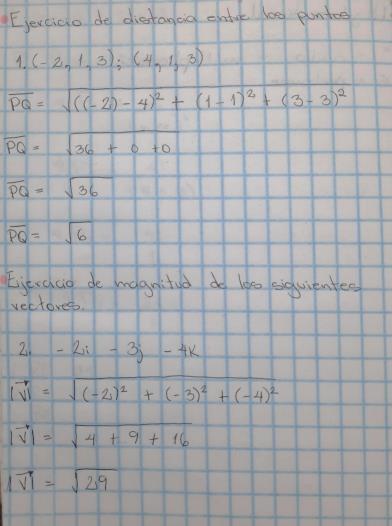 Ejercicio de distancia entre los puntos
1. (-2, 1, 3); (4, 1, 3)
PQ = √((-2)-4)² + (1-1)² + (3-3)²
PQ = √36 + 0 + 0
PQ = √36
PQ = √6
Ejercicio de magnitud de los siguientes
vectores.
2. -2i - 3j - 4k
|V| = √(-2)² + (-3)² + (-4)²
|V| = √4 + 9 + 16
|V| = √29